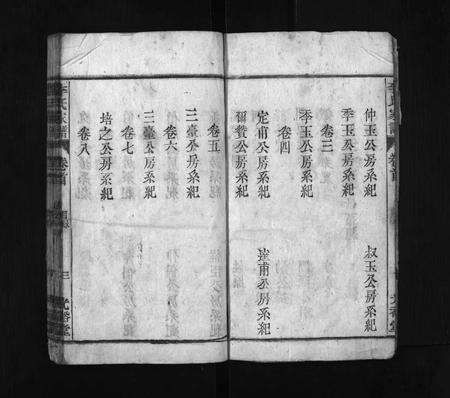 仲玉公房系紀 叔玉公房系紀
季玉公房系紀
卷三
季玉公房系紀
卷四
定甫公房系紀 達甫公房系紀
爾贊公房系紀
卷五
三臺公房系紀
卷六
三臺公房系紀
卷七
培之公房系紀
卷八
李氏家譜 卷首 三